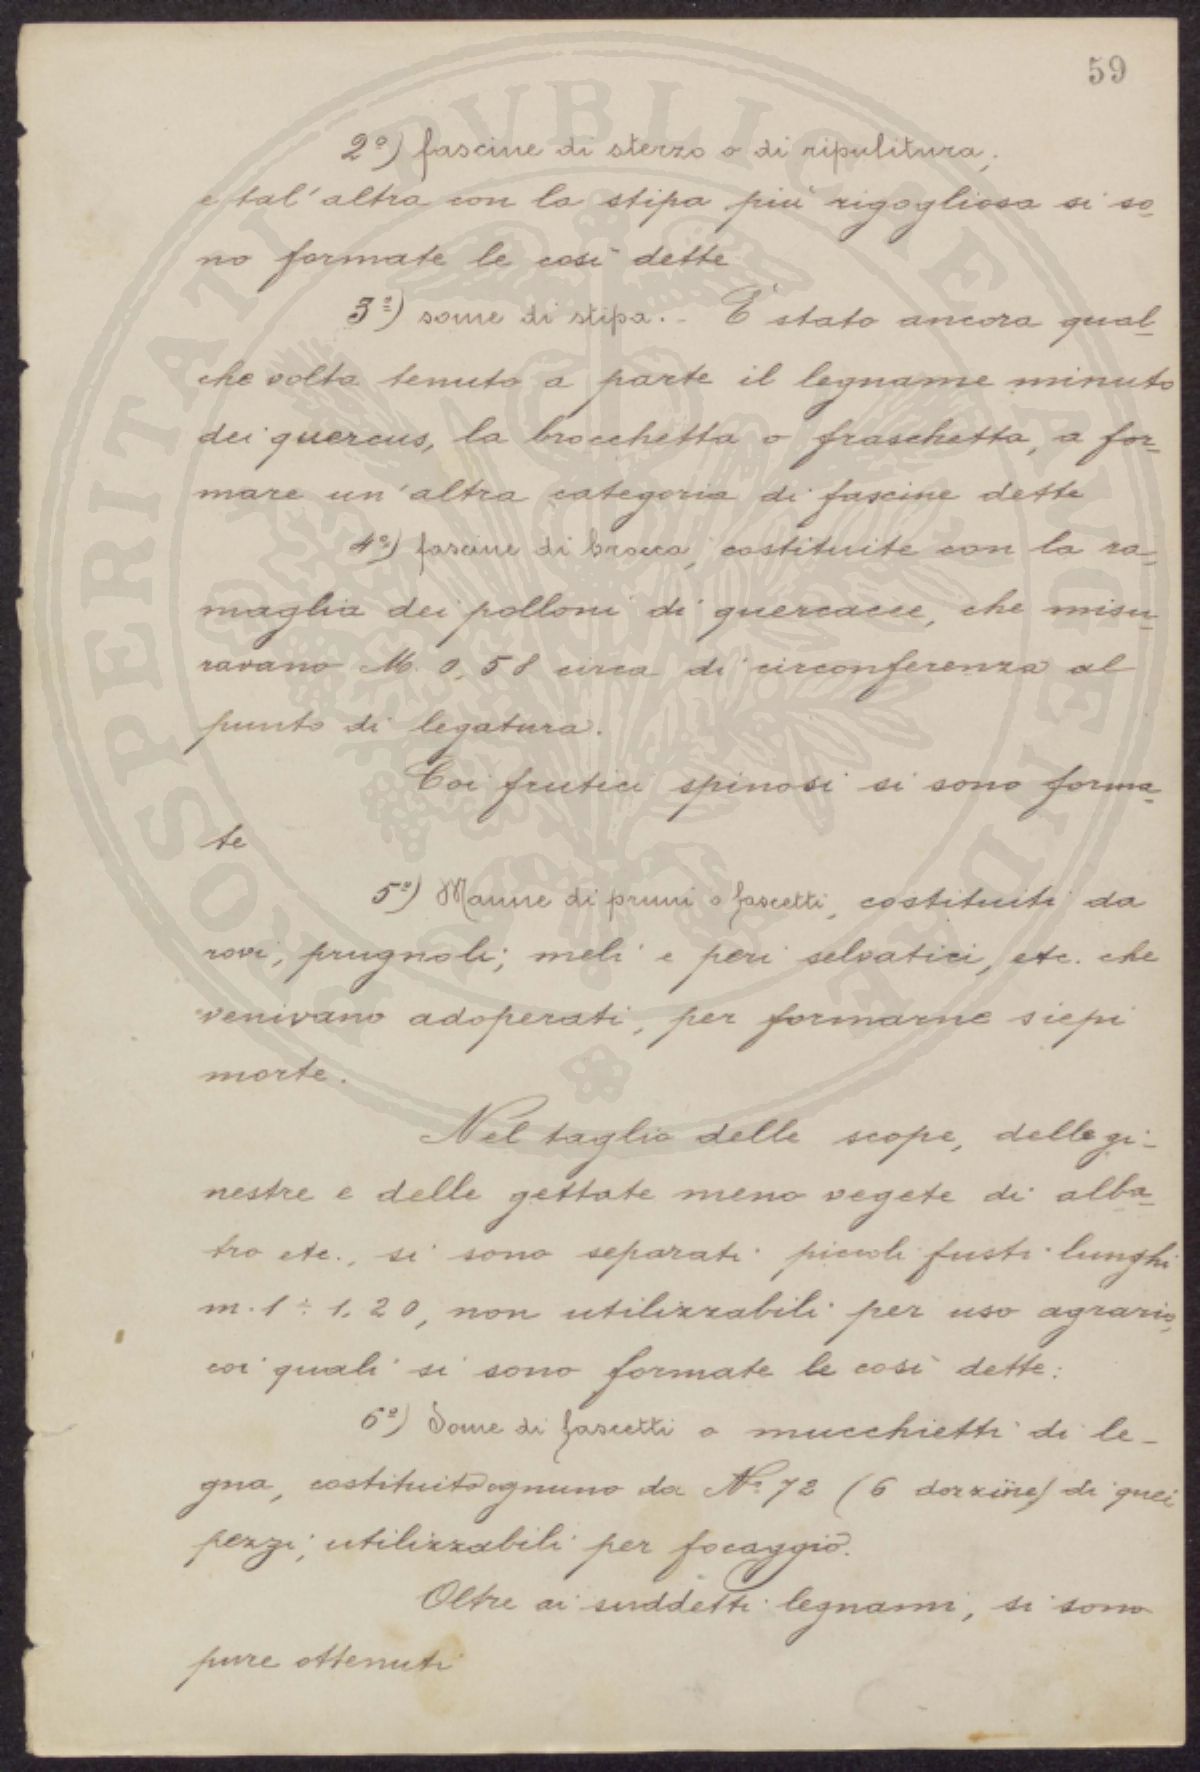 59
2º) fascine di sterzo o di ripulitura,
e tal'altra con la stipa più rigogliosa si so-
no formate le così dette
3º) some di stipa. - È stato ancora qual-
che volta tenuto a parte il legname minuto
dei quercus, la brocchetta o fraschetta, a for-
mare un'altra categoria di fascine dette
4º) fascine di brocca, costituite con la ra-
maglia dei polloni di quercacce, che misu-
ravano M. 0,58 circa di circonferenza al
punto di legatura.
Coi frutici spinosi si sono forma-
te
5º) Manne di pruni o fascetti, costituiti da
rovi, prugnoli; meli e peri selvatici, etc. che
venivano adoperati, per formarne siepi
morte.
Nel taglio delle scope, delle gi-
nestre e delle gettate meno vegete di alba-
tro etc., si sono separati piccoli fusti lunghi
m. 1 ÷ 1.20, non utilizzabili per uso agrario,
coi quali si sono formate le così dette:
6º) Some di fascetti o mucchietti di le-
gna, costituito ognuno da Nº 72 (6 dozzine) di quei
pezzi, utilizzabili per focaggio.
Oltre ai suddetti legnami, si sono
pure ottenuti
PROSPERITATI PVBLICAE AVGENDAE